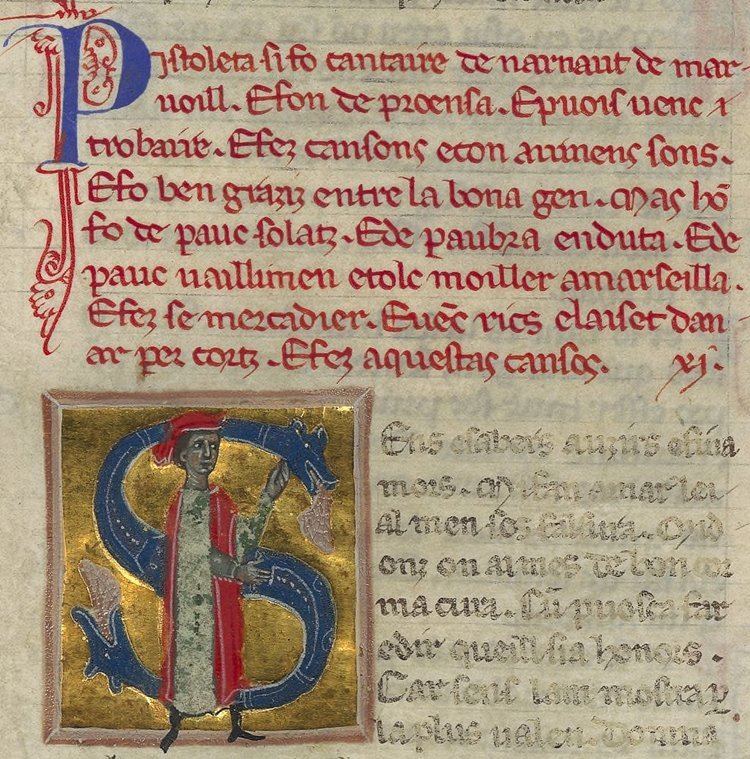 Pistoleta si fo cantaire de narnaut de mar-
uoill. E fon de proensa. E puois uenc
trobaire. E fez cansons e con auinens sons.
E fo ben graziz entre la bona gen. Mas hō
fo de pauc solatz. E de paubra enduta. E de
pauc uaillimen e tolc moiller a marseilla.
E fez se mercadier. E uēc rics e laiset dan
ar per cortz. E fez aquestas cansos. xi.
Sens e sabers auzirs e fina
mors. Mi fan amar lei
al men sos
onz on ai mes de bon cor
ma cura. puosca far
e dir queill sia honors.
Car sens lam mostra
la plus ualen. Domna